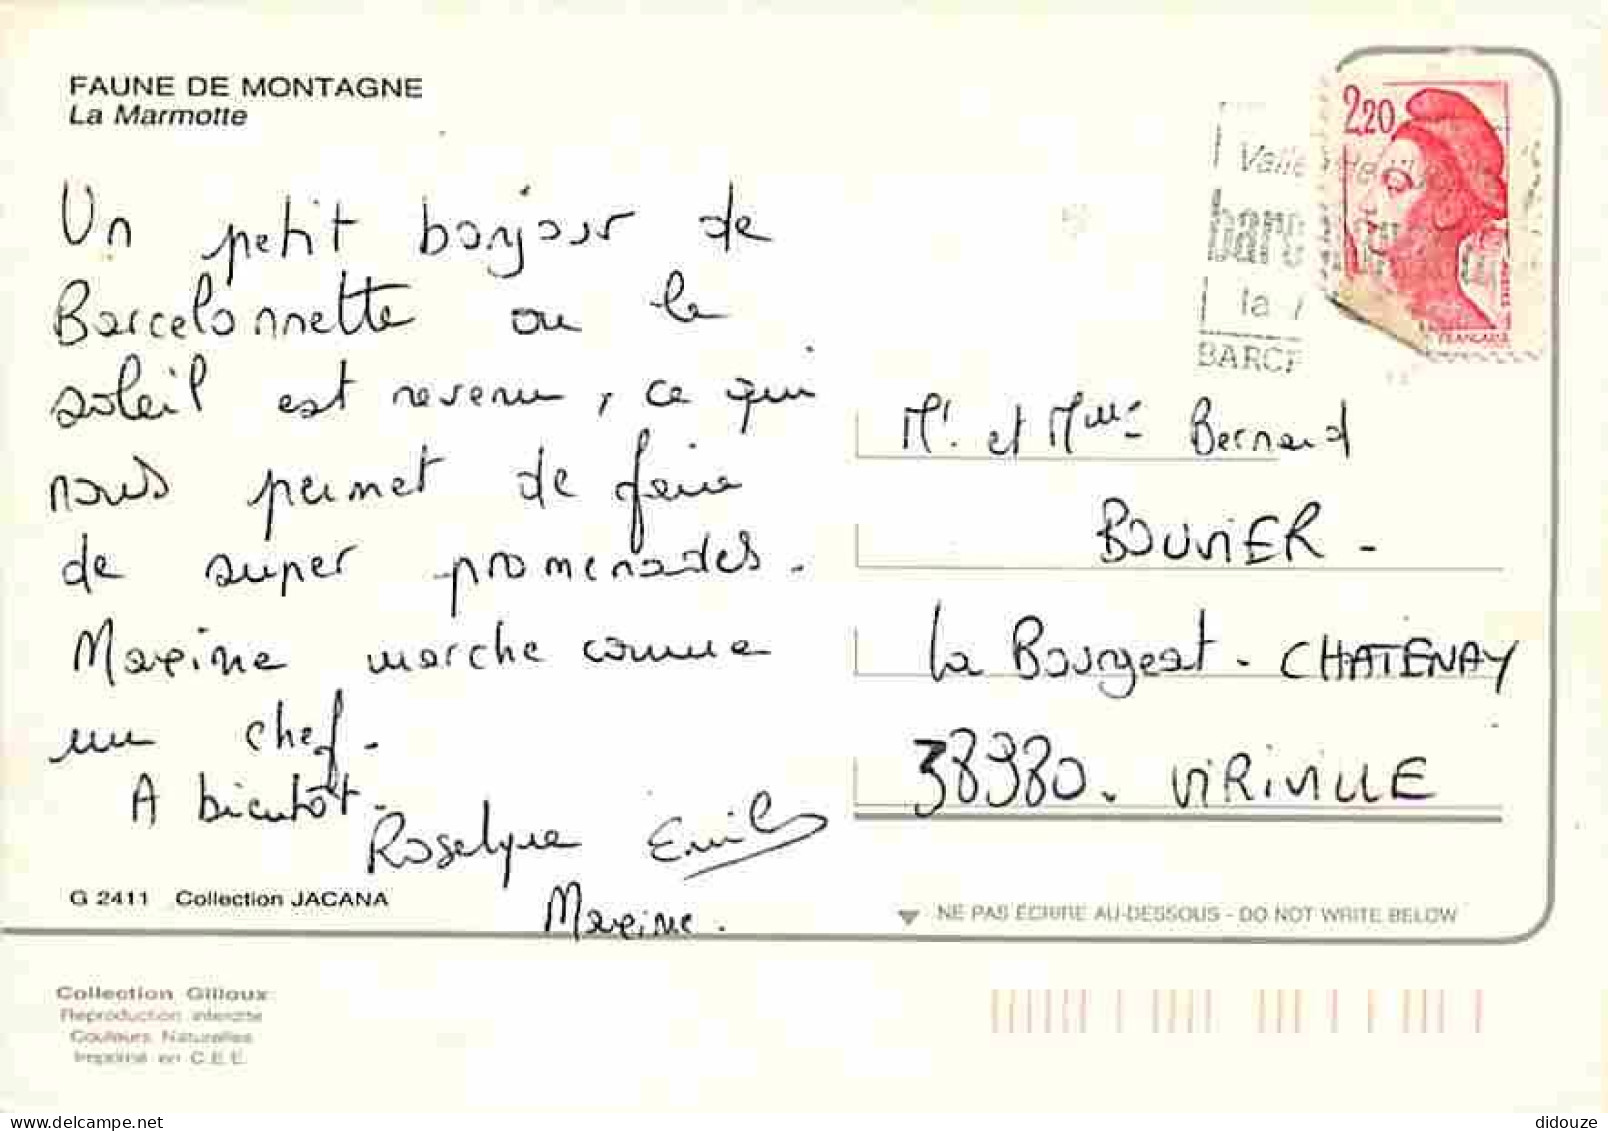 FAUNE DE MONTAGNE
La Marmotte
Un petit bonjour de
Barcelonnette ou le
soleil est revenu, ce qui
nous permet de faire
de super promenades.
Maxine marche comme
un chef.
A bientôt.
Roselyne
Maxine.
G 2411 Collection JACANA
Collection Gilloux
Reproduction interdite
Couleurs Naturelles
Imprimé en C.E.E.
2,20
la
BARCE
Mr. et Mme Bernard
BOUVIER -
La Bourgeat - CHATENAY
38980. VIRIVILLE
NE PAS ÉCRIRE AU-DESSOUS - DO NOT WRITE BELOW
www.delcampe.net
didouze